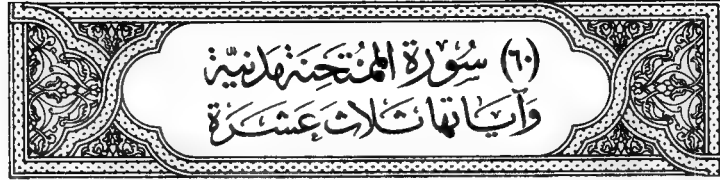 (٦٠) سُوْرَة المُمْتَحِنَة مَدَنِيّة
وَآيَاتهَا ثَلَاثَ عَشَرَة